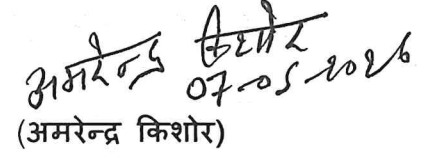 अमरेन्द्र किशोर
07-05-2026
(अमरेन्द्र किशोर)